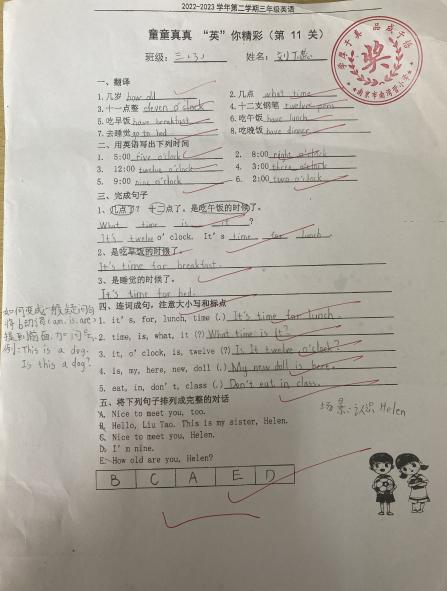 2022-2023学年第二学期三年级英语
童童真真 “英”你精彩（第 11 关）
班级: 三(3) 姓名:
一、翻译
1. 几岁 how old 2. 几点 what time
3. 十一点整 eleven o'clock 4. 十二支钢笔 twelve pens
5. 吃早饭 have breakfast 6. 吃午饭 have lunch
7. 去睡觉 go to bed 8. 吃晚饭 have dinner
二、用英语写出下列时间
1. 5:00 five o'clock 2. 8:00 eight o'clock
3. 12:00 twelve o'clock 4. 3:00 three o'clock
5. 9:00 nine o'clock 6. 2:00 two o'clock
三、完成句子
1、几点了? 十二点了。是吃午饭的时候了。
What time is it ?
It's twelve o'clock. It's time for lunch.
2、是吃早饭的时候了。
It's time for breakfast.
3、是睡觉的时候了。
It's time for bed.
四、连词成句，注意大小写和标点
1. it's, for, lunch, time (.) It's time for lunch.
2. time, is, what, it (?) What time is it?
3. it, o'clock, is, twelve (?) Is it twelve o'clock?
4. is, my, here, new, doll (.) My new doll is here.
5. eat, in, don't, class (.) Don't eat in class.
如何变成一般疑问句
将be动词(am, is, are)
提到前面,加问号。
例:This is a dog.
Is this a dog?
五、将下列句子排列成完整的对话
A. Nice to meet you, too.
B. Hello, Liu Tao. This is my sister, Helen.
C. Nice to meet you, Helen.
D. I'm nine.
E. How old are you, Helen?
场景:认识 Helen
B C A E D
奖